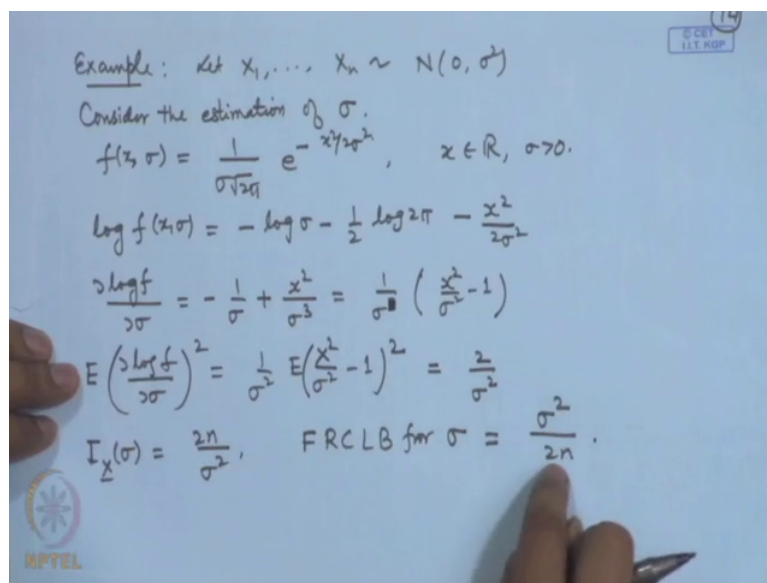 14
© CET
I.I.T. KGP
Example: Let X₁, ..., Xₙ ~ N(0, σ²)
Consider the estimation of σ.
f(x, σ) = 1/(σ√2π) e^{-x²/2σ²}, x ∈ ℝ, σ>0.
log f(x,σ) = - log σ - 1/2 log 2π - x²/2σ²
∂logf/∂σ = - 1/σ + x²/σ³ = 1/σ (x²/σ² - 1)
E(∂logf/∂σ)² = 1/σ² E(X²/σ² - 1)² = 2/σ²
I_X(σ) = 2n/σ², FRCLB for σ = σ²/2n.
NPTEL